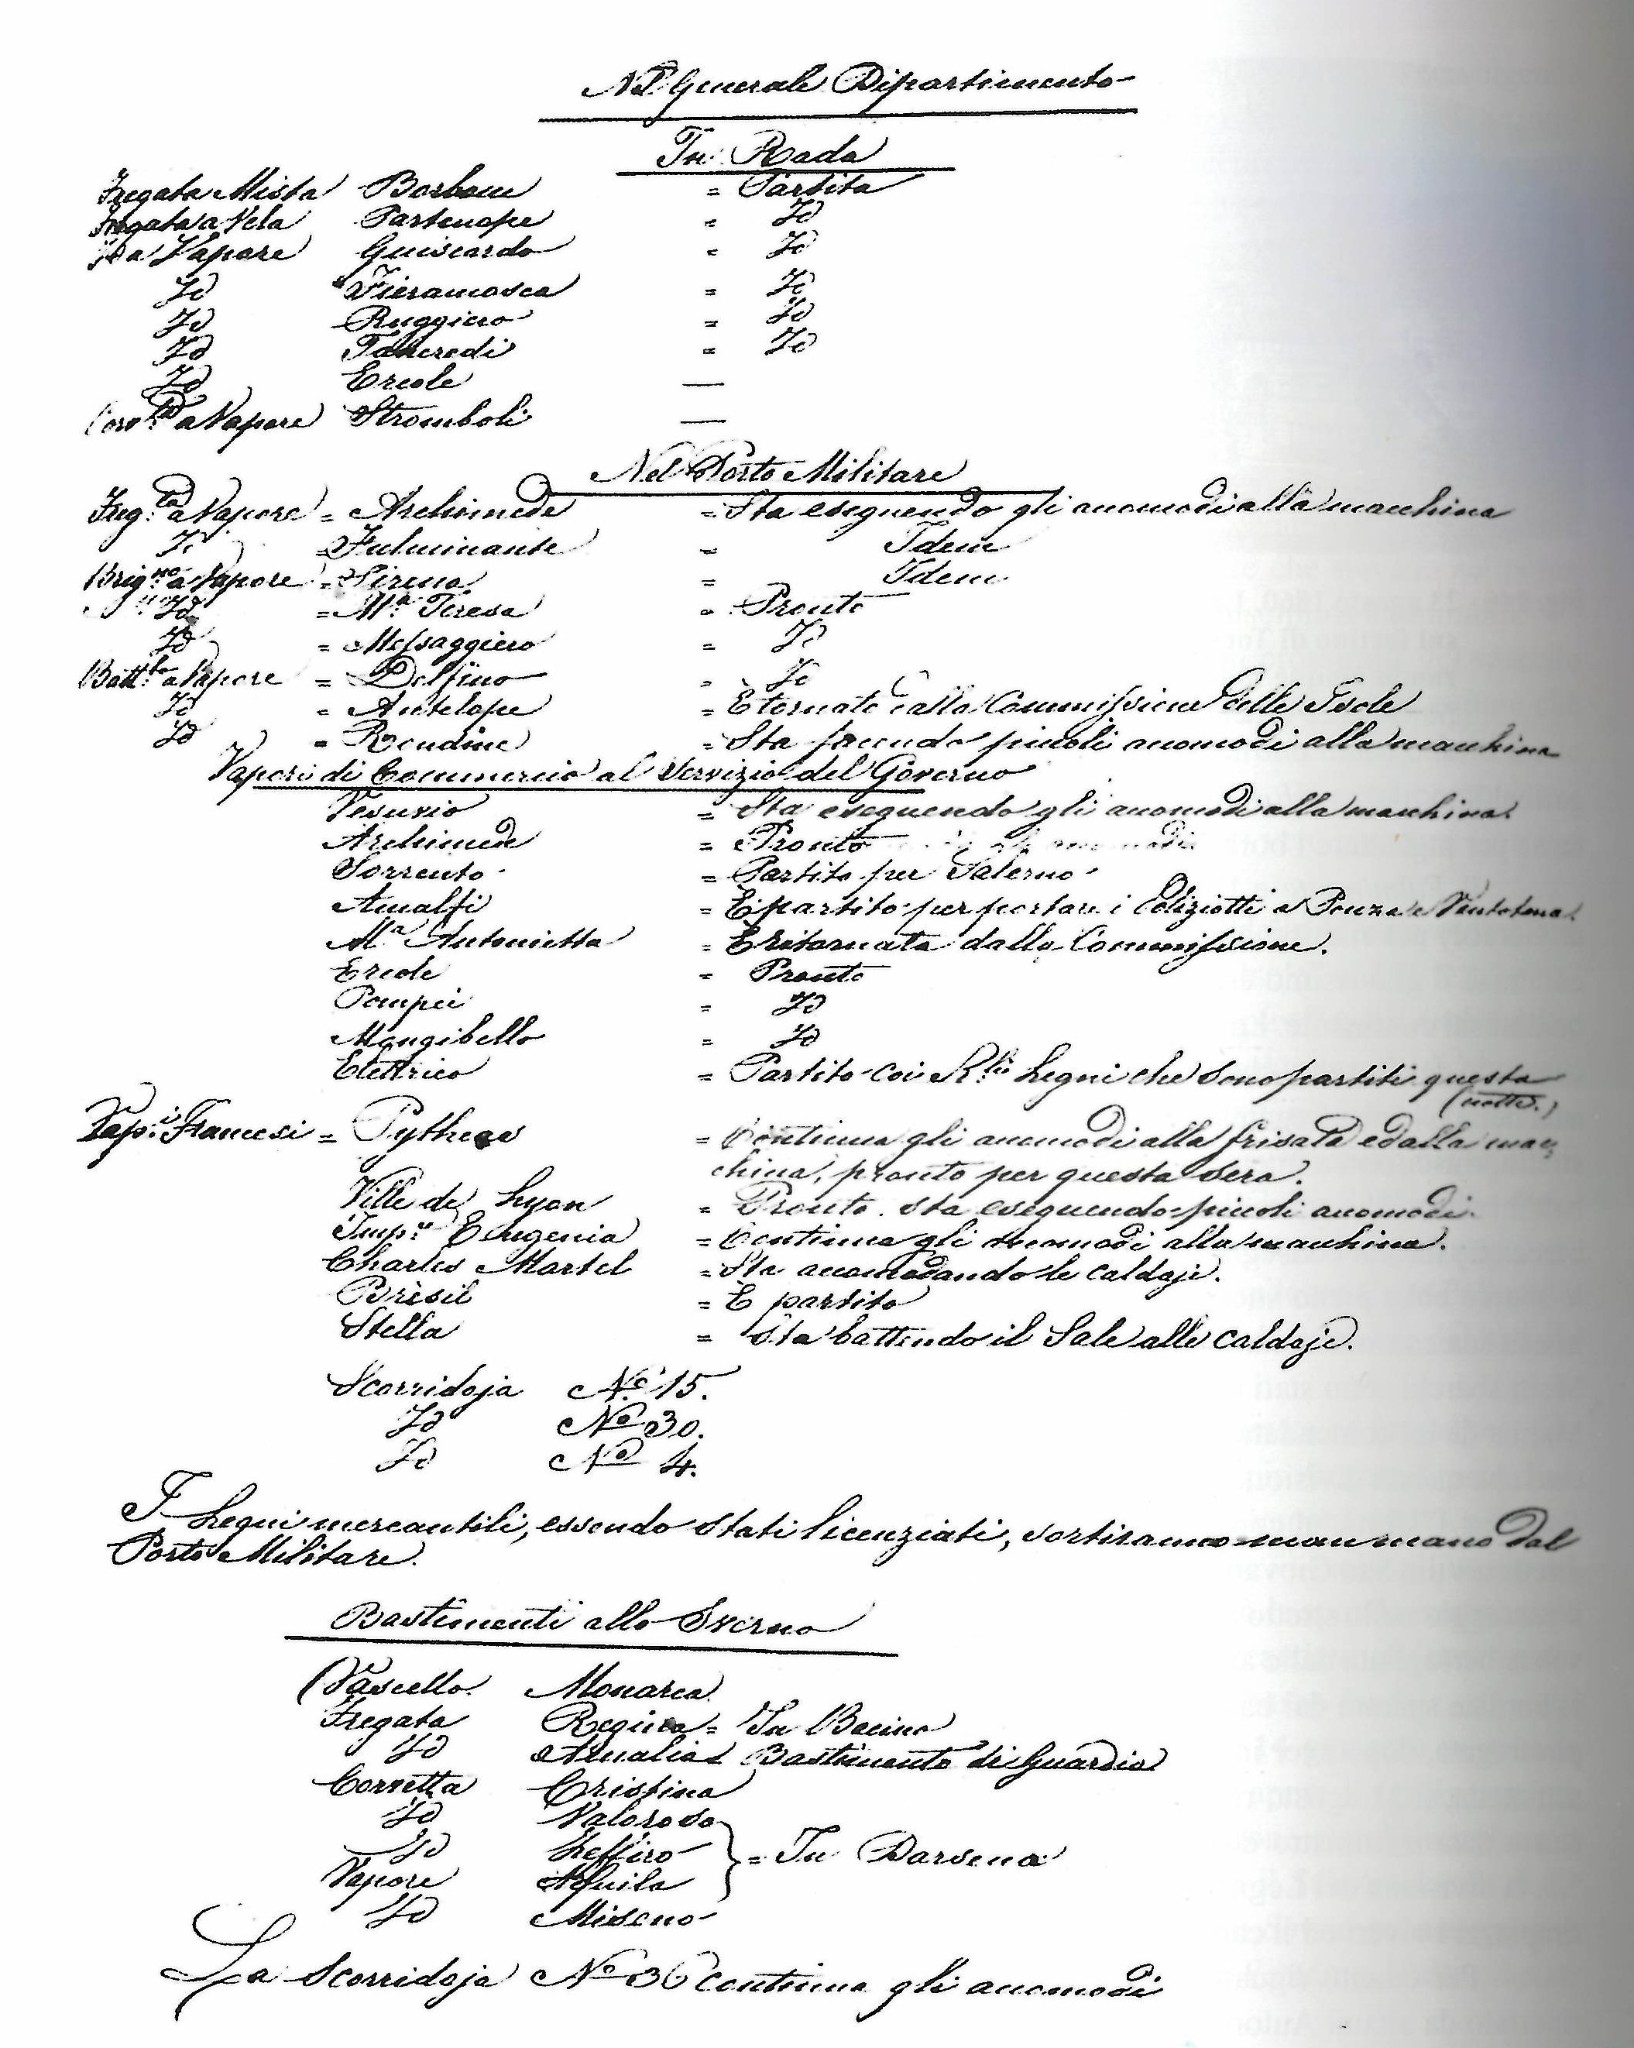 Nel Generale Dipartimento
In Rada
Fregata Mista Borbone = Partita
Fregata a Vela Partenope = Id
Id a Vapore Guiscardo = Id
Id Fieramosca = Id
Id Ruggiero = Id
Id Tancredi = Id
Id Ercole —
Corv.ta a Vapore Stromboli —
Nel Porto Militare
Freg.ta a Vapore = Archimede = Sta eseguendo gli accomodi alla macchina
Id = Fulminante = Idem
Brig.no a Vapore = Sirena = Idem
Id = M.a Teresa = Pronto
Id = Messaggiero = Id
Batt.lo a Vapore = Delfino = Id
Id = Antelope = È tornato dalla Commissione delle Isole
Id = Rondine = Sta facendo piccoli accomodi alla macchina
Vapori di Commercio al Servizio del Governo
Vesuvio = Sta eseguendo gli accomodi alla macchina
Archimede = Pronto
Sorrento = Partito per Salerno
Amalfi = È partito per portare i Poliziotti a Ponza e Ventotene
M.a Antonietta = È ritornata dalla Commissione.
Ercole = Pronto
Pompei = Id
Mongibello = Id
Elettrico = Partito coi R.li Legni che sono partiti questa
(notte.)
Vap.i Francesi = Pytheas = Continua gli accomodi alla frisata e dalla mac,
china, pronto per questa sera.
Ville de Lyon = Pronto. sta eseguendo piccoli accomodi.
Imp.e Eugenia = Continua gli accomodi alla macchina.
Charles Martel = Sta accomodando le caldaje.
Brèsil = È partito
Stella = Sta battendo il Sale alle caldaje.
Scorridoja N.o 15.
Id N.o 30.
Id N.o 4.
I Legni mercantili, essendo stati licenziati, sortiranno man mano dal
Porto Militare.
Bastimenti allo Sverno
Vascello Monarca
Fregata Regina = In Bacino
Id Amalia = Bastimento di Guardia
Corvetta Cristina
Id Valoroso
Id Zeffiro } = In Darsena
Vapore Aquila
Id Miseno
La Scorridoja N.o 36 continua gli accomodi